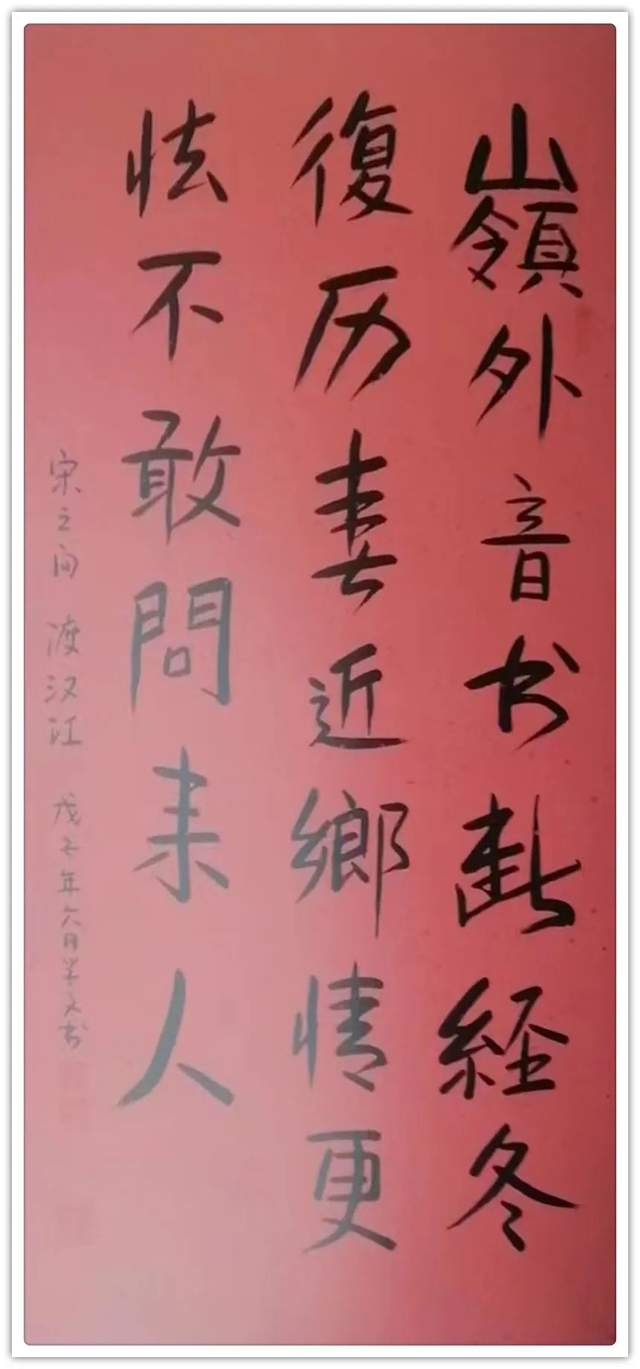 嶺外音书断经冬
復历春近鄉情更
怯不敢問来人
宋之问 渡汉江 戊子年六月学文书